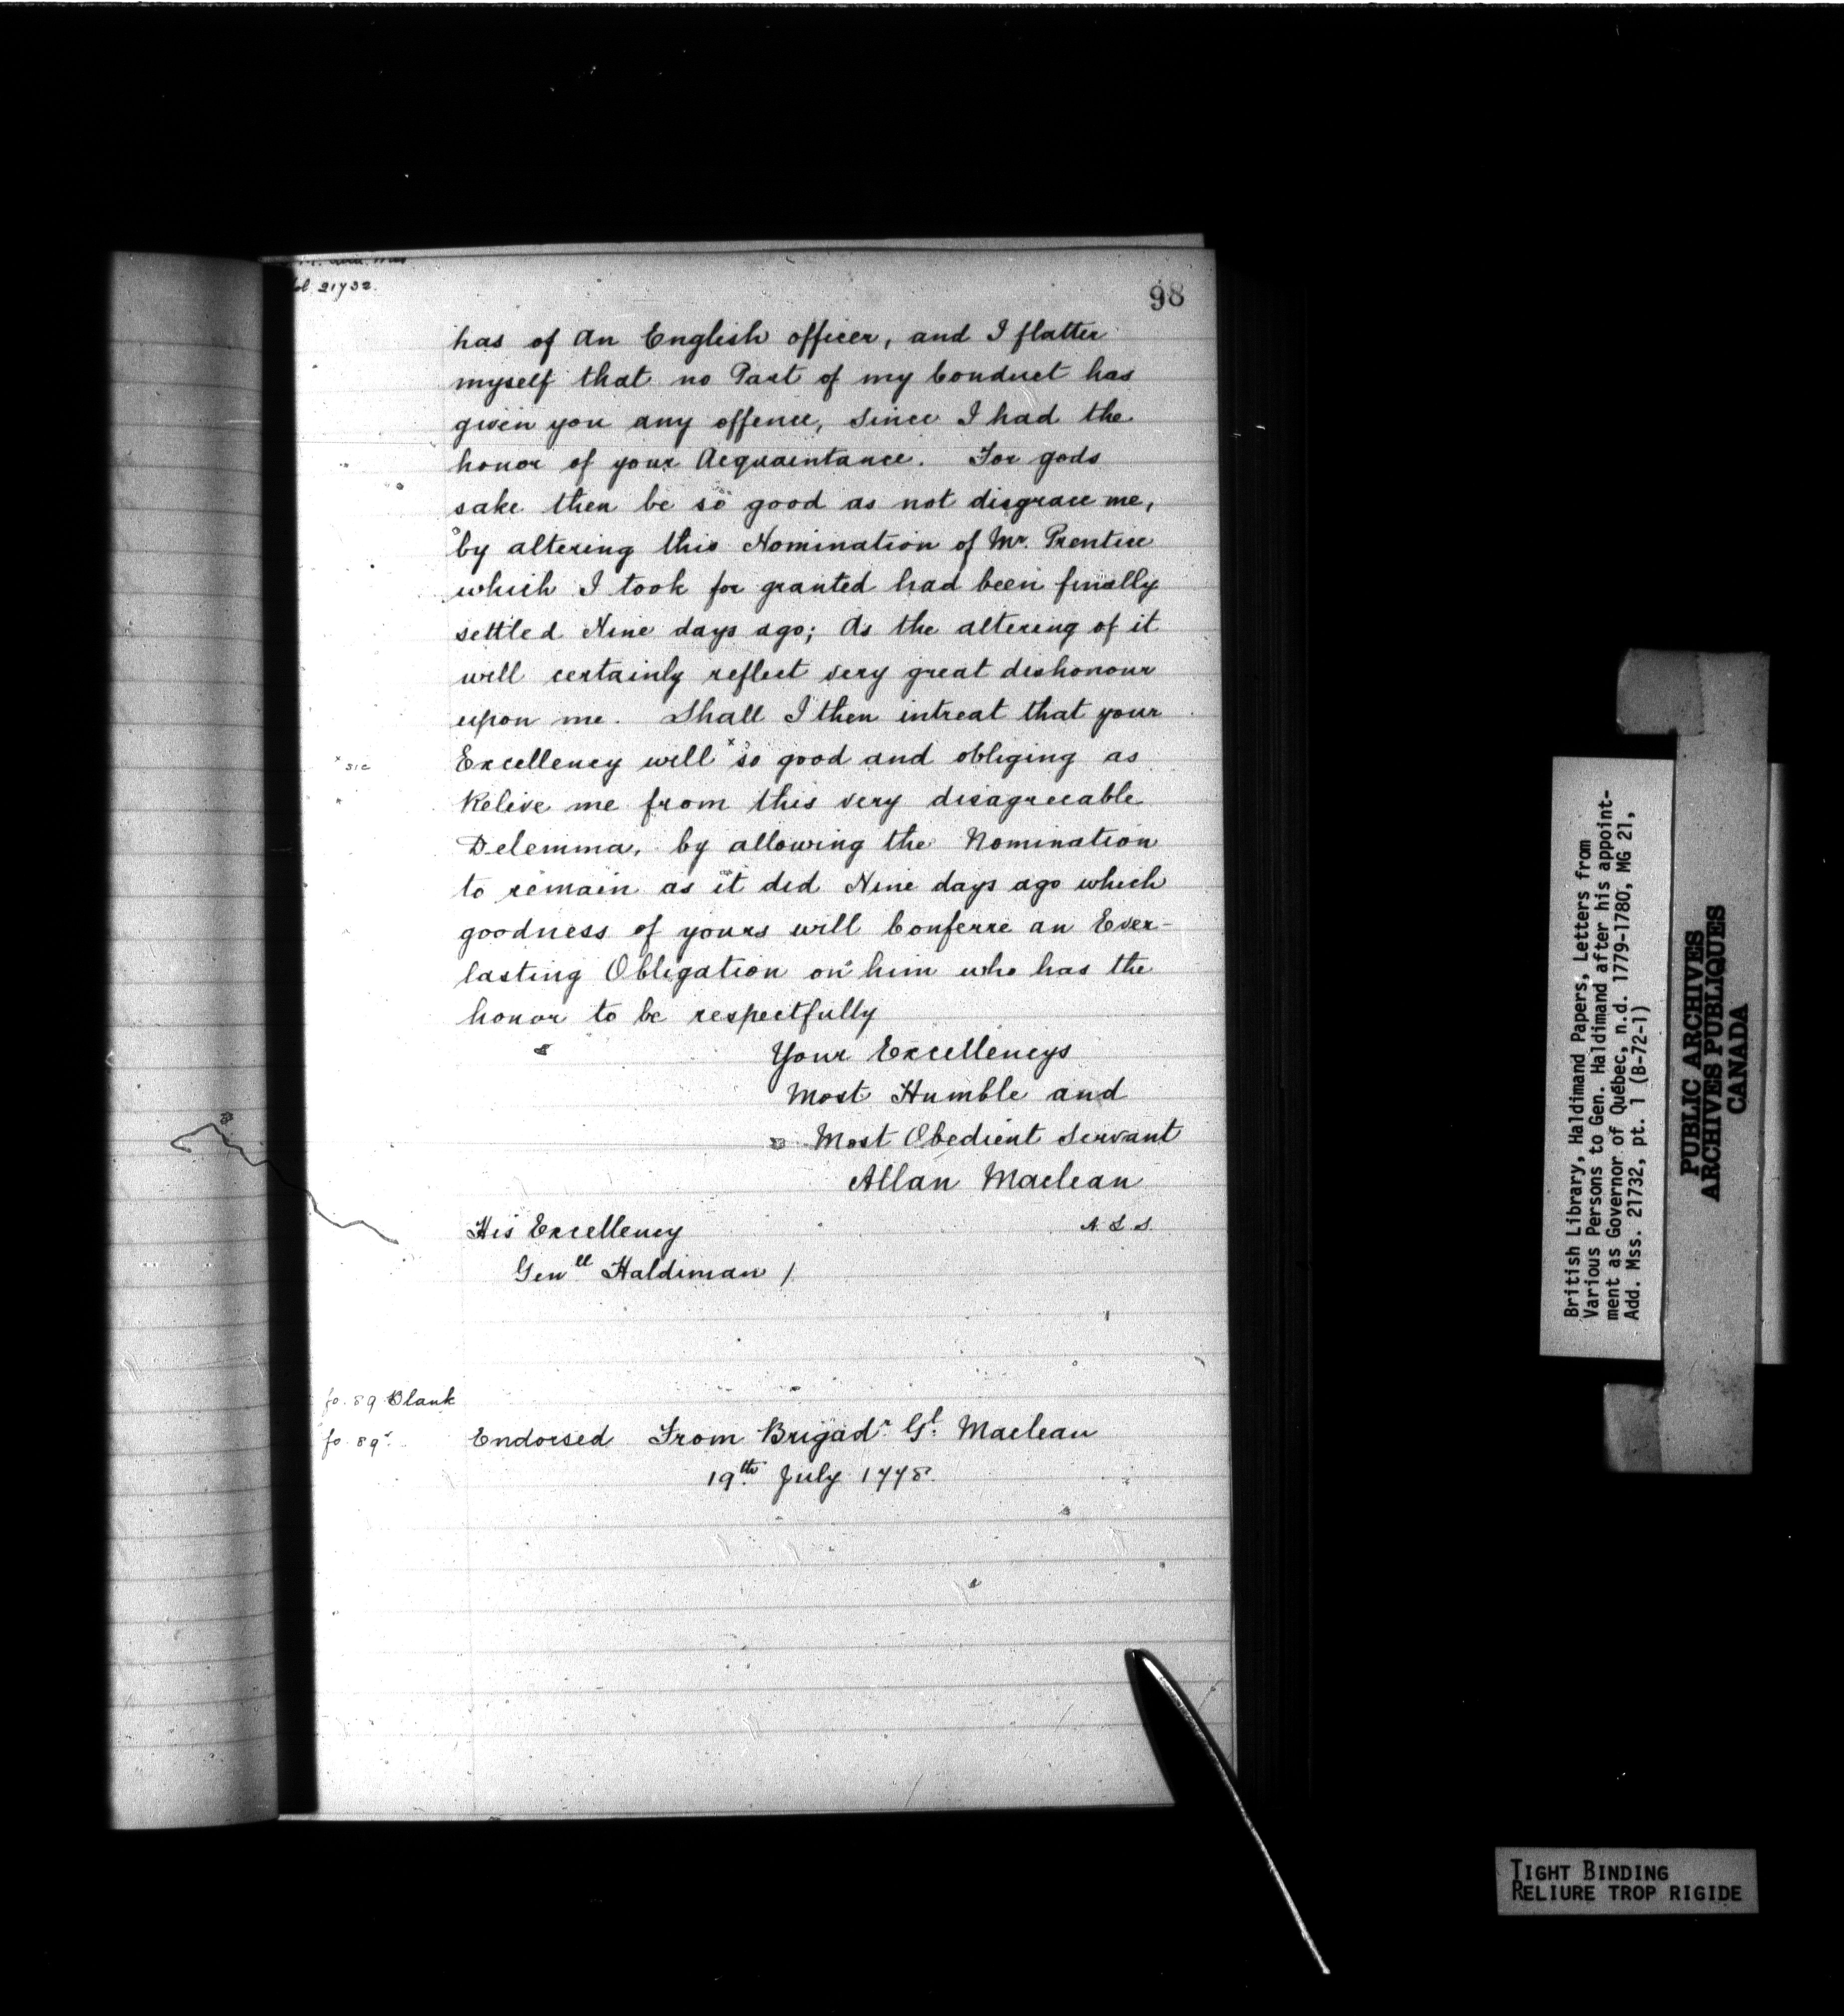 21732.
98
has of An English officer, and I flatter
myself that no Part of my Conduct has
given you any offence, since I had the
honor of your Acquaintance. For gods
sake then be so good as not disgrace me,
by altering this Nomination of Mr. Prentice
which I took for granted had been finally
settled Nine days ago; As the altering of it
will certainly reflect very great dishonour
upon me. Shall I then intreat that your
x sic
Excellency will x so good and obliging as
Relive me from this very disagreeable
Delemma, by allowing the Nomination
to remain as it did Nine days ago which
goodness of yours will Conferre an Ever-
lasting Obligation on him who has the
honor to be respectfully
Your Excellencys
Most Humble and
Most Obedient Servant
Allan Maclean
A. L. S.
His Excellency
Genll Haldiman /
fo. 89 Blank
fo. 89v.
Endorsed From Brigadr. Gl. Maclean
19th. July 1778.
British Library, Haldimand Papers, Letters from
Various Persons to Gen. Haldimand after his appoint-
ment as Governor of Québec, n.d. 1779-1780, MG 21,
Add. Mss. 21732, pt. 1 (B-72-1)
PUBLIC ARCHIVES
ARCHIVES PUBLIQUES
CANADA
TIGHT BINDING
RELIURE TROP RIGIDE